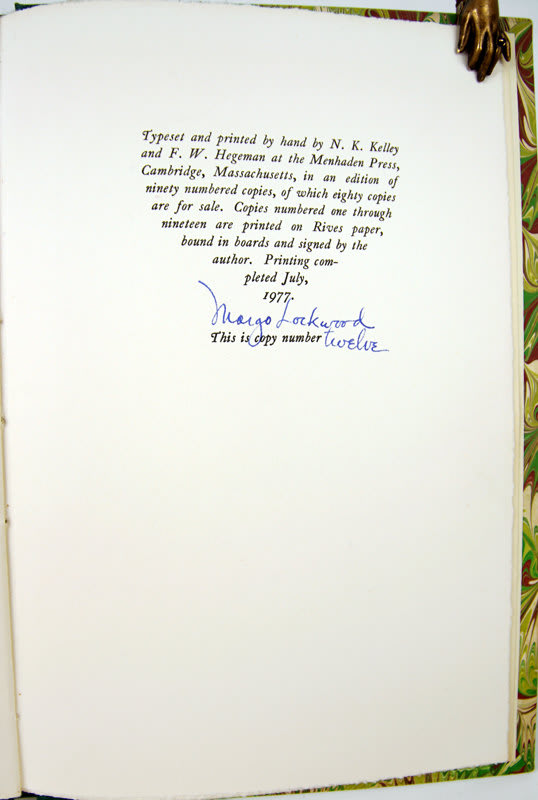 Typeset and printed by hand by N. K. Kelley
and F. W. Hegeman at the Menhaden Press,
Cambridge, Massachusetts, in an edition of
ninety numbered copies, of which eighty copies
are for sale. Copies numbered one through
nineteen are printed on Rives paper,
bound in boards and signed by the
author. Printing com-
pleted July,
1977.
Margo Lockwood
This is copy number twelve